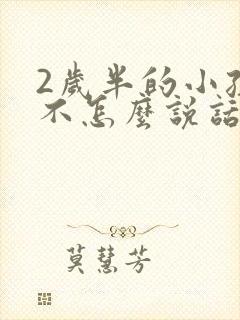 2歲半的小孩
不怎麼説話
莫慧芳